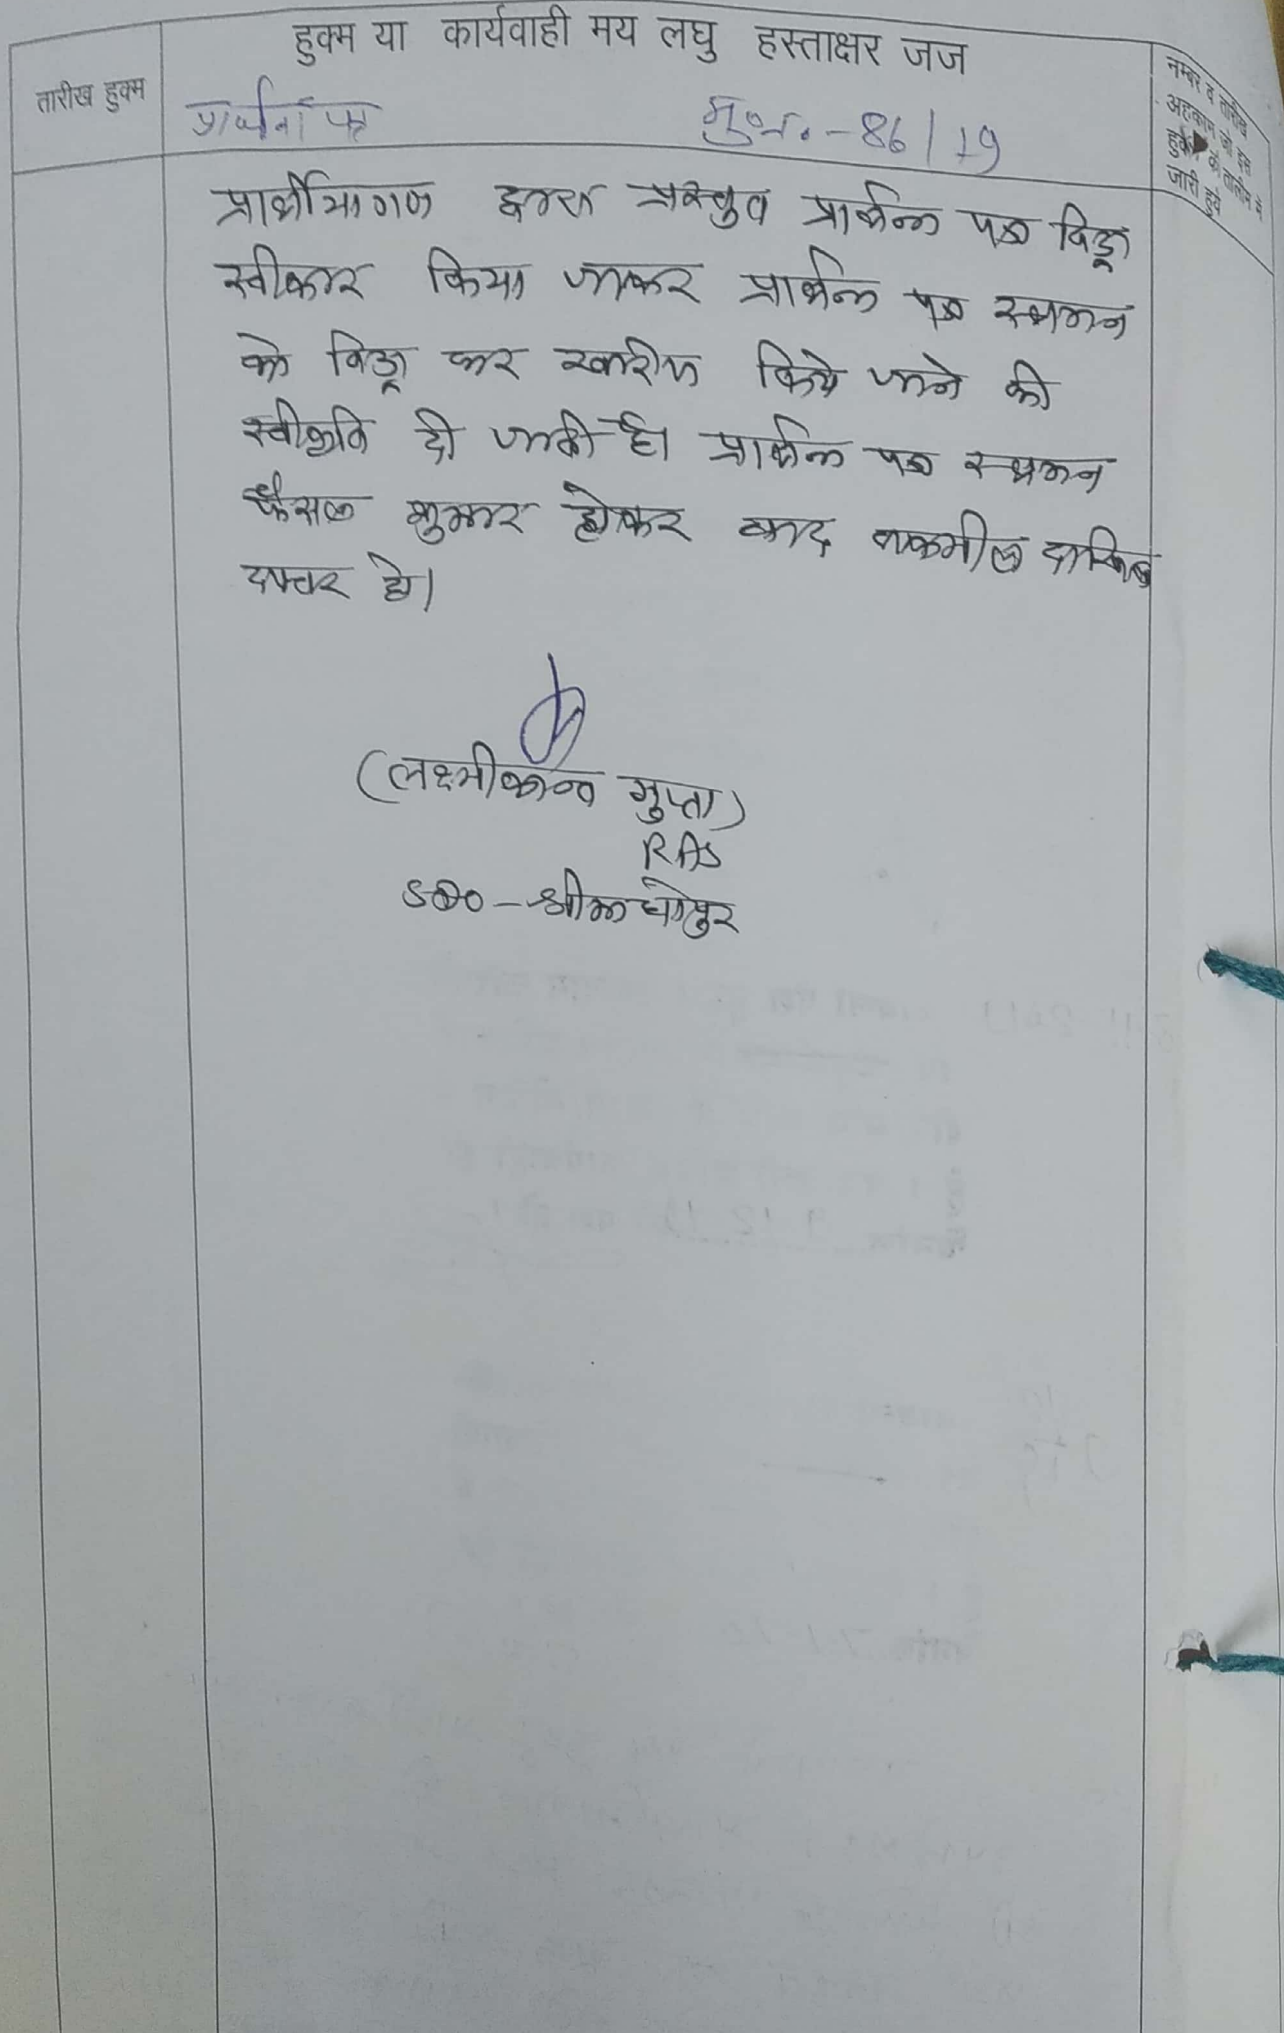 हुक्म या कार्यवाही मय लघु हस्ताक्षर जज
तारीख हुक्म
नम्बर व तारीख
अहकाम जो इस
हुक्म की तामील में
जारी हुये
प्रार्थना पत्र मु०न०-86/19
प्रार्थीयागण द्वारा प्रस्तुत प्रार्थना पत्र विड्रो
स्वीकार किया जाकर प्रार्थना पत्र स्थगन
को विड्रो कर खारीज किये जाने की
स्वीकृति दी जाती है। प्रार्थना पत्र स्थगन
फैसल शुमार होकर बाद तकमील दाखिल
दफ्तर हो।
(लक्ष्मीकान्त गुप्ता)
RAS
SDO-श्रीमाधोपुर